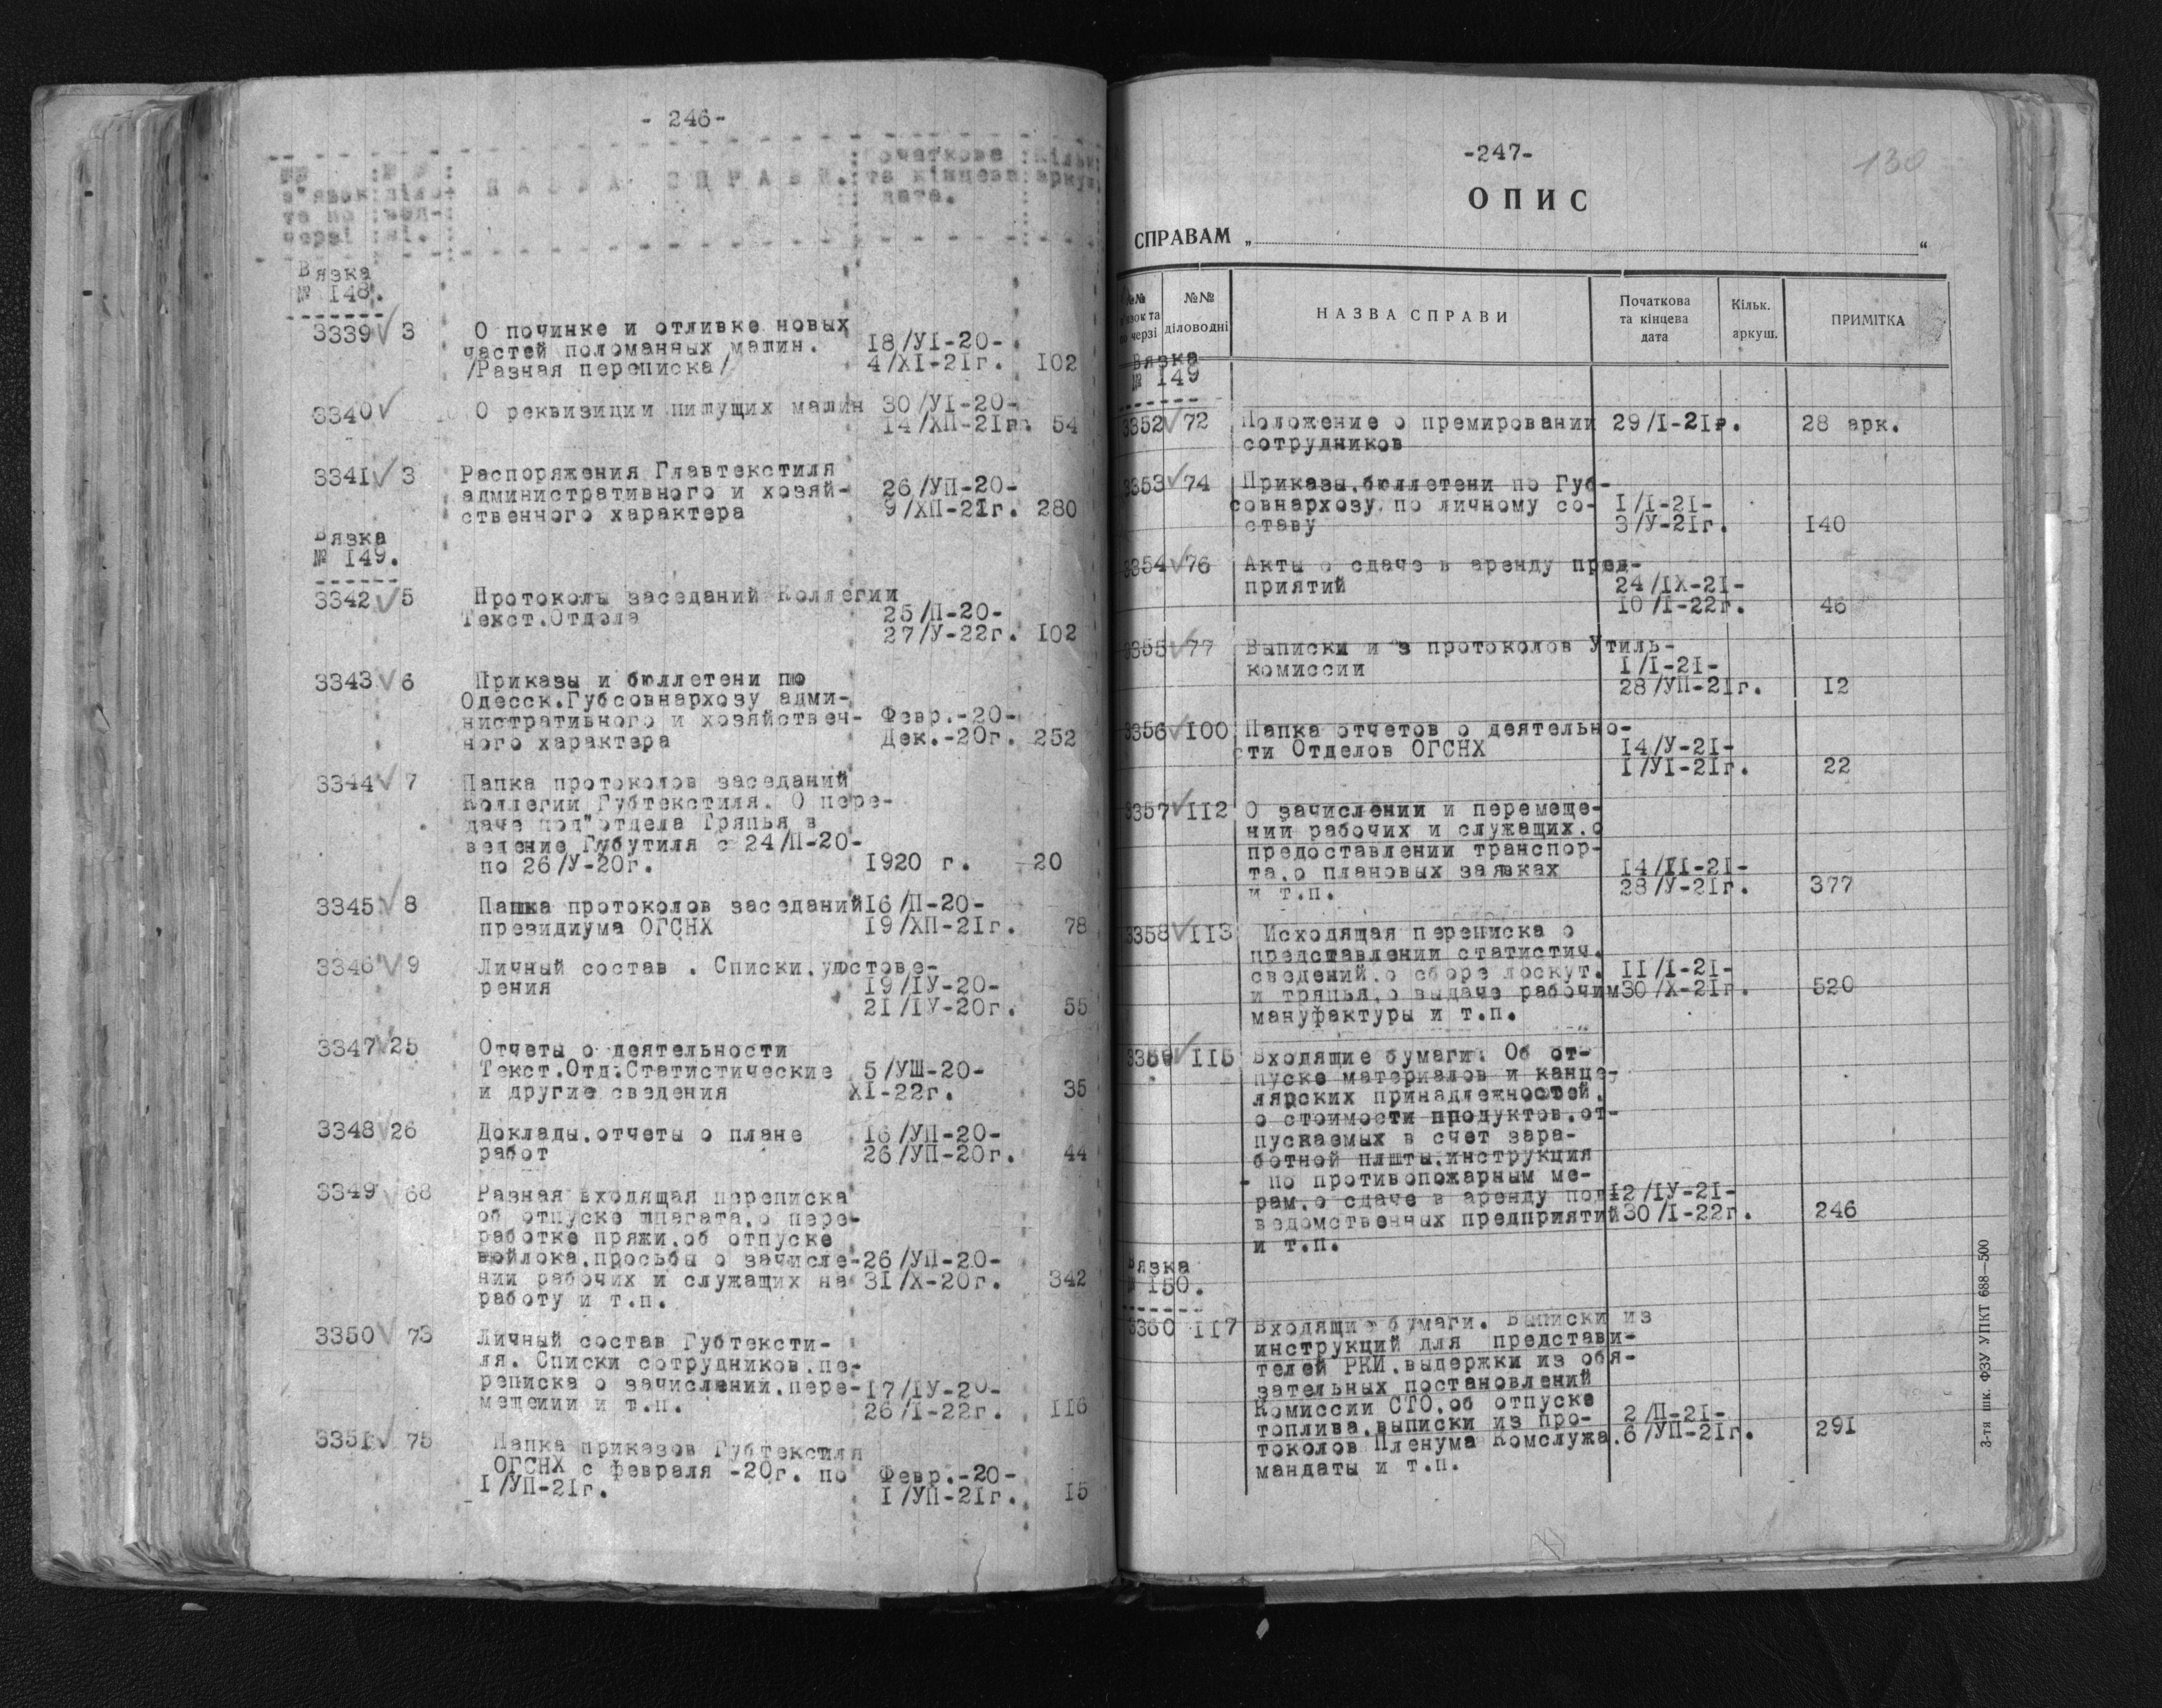 - 246-
№№ : № № : Початкова : Кільк.
в"язок : діло- : Н А З В А С П Р А В И. : та кінцева : аркуш.
та по : вод- : дата.
черзі : ні. :
Вязка
№ 148.
3339 √ 3 О починке и отливке новых
частей поломанных машин. 18/УІ-20-
/Разная переписка/ 4/ХІ-21г. 102
3340 √ О реквизиции пишущих машин 30/УІ-20-
14/ХП-21г. 54
3341 √ 3 Распоряжения Главтекстиля
административного и хозяй- 26/УП-20-
ственного характера 9/ХП-21г. 280
Вязка
№ 149.
3342 √ 5 Протоколы заседаний Коллегии
Текст.Отдела 25/П-20-
27/У-22г. 102
3343 √ 6 Приказы и бюллетени по
Одесск.Губсовнархозу адми-
нистративного и хозяйствен- Февр.-20-
ного характера Дек.-20г. 252
3344 √ 7 Папка протоколов заседаний
Коллегии Губтекстиля. О пере-
даче под"отдела Тряпья в
ведение Губутиля с 24/П-20-
по 26/У-20г. 1920 г. 20
3345 √ 8 Папка протоколов заседаний 16/П-20-
президиума ОГСНХ 19/ХП-21г. 78
3346 √ 9 Личный состав . Списки,удостове-
рения 19/ІУ-20-
21/ІУ-20г. 55
3347 √ 25 Отчеты о деятельности
Текст.Отд.Статистические 5/УШ-20-
и другие сведения ХІ-22г. 35
3348 √ 26 Доклады,отчеты о плане 16/УП-20-
работ 26/УП-20г. 44
3349 √ 68 Разная входящая переписка
об отпуске шпагата,о пере-
работке пряжи,об отпуске
войлока,просьбы о зачисле- 26/УП-20-
нии рабочих и служащих на 31/Х-20г. 342
работу и т.п.
3350 √ 73 Личный состав Губтексти-
ля. Списки сотрудников,пе-
реписка о зачислении,пере- 17/ІУ-20-
мещении и т.п. 26/І-22г. 116
3351 √ 75 Папка приказов Губтекстиля
ОГСНХ с февраля -20г. по Февр.-20-
1/УП-21г. 1/УП-21г. 15
-247-
130
ОПИС
СПРАВАМ „ “
№№ №№ НАЗВА СПРАВИ Початкова Кільк. ПРИМІТКА
в'язок та діловодні та кінцева
по черзі дата аркуш.
Вязка
№ 149
3352 √ 72 Положение о премировании 29/І-21г. 28 арк.
сотрудников
3353 √ 74 Приказы,бюллетени по Губ-
совнархозу по личному со- 1/І-21-
ставу 3/У-21г. 140
3354 √ 76 Акты о сдаче в аренду пред-
приятий 24/ІХ-21-
10/І-22г. 46
3355 √ 77 Выписки и з протоколов Утиль-
комиссии 1/І-21-
28/УП-21г. 12
3356 √ 100 Папка отчетов о деятельно-
сти Отделов ОГСНХ 14/У-21-
1/УІ-21г. 22
3357 √ 112 О зачислении и перемеще-
нии рабочих и служащих,о
предоставлении транспор-
та,о плановых заявках 14/ІІ-21-
и т.п. 28/У-21г. 377
3358 √ 113 Исходящая переписка о
представлении статистич.
сведений,о сборе лоскут. 11/І-21-
и тряпья,о выдаче рабочим 30/Х-21г. 520
мануфактуры и т.п.
3359 √ 115 Входящие бумаги. Об от-
пуске материалов и канце-
лярских принадлежностей,
о стоимости продуктов,от-
пускаемых в счет зара-
ботной платы,инструкция
- по противопожарным ме-
рам,о сдаче в аренду под 12/ІУ-21-
ведомственных предприятий 30/І-22г. 246
и т.п.
Вязка
№ 150.
3360 117 Входящие бумаги. Выписки из
инструкций для представи-
телей РКИ,выдержки из обя-
зательных постановлений
Комиссии СТО,об отпуске
топлива,выписки из про- 2/П-21-
токолов Пленума Комслужа. 6/УП-21г. 291
мандаты и т.п.
3-тя шк. ФЗУ УПКТ 688—500